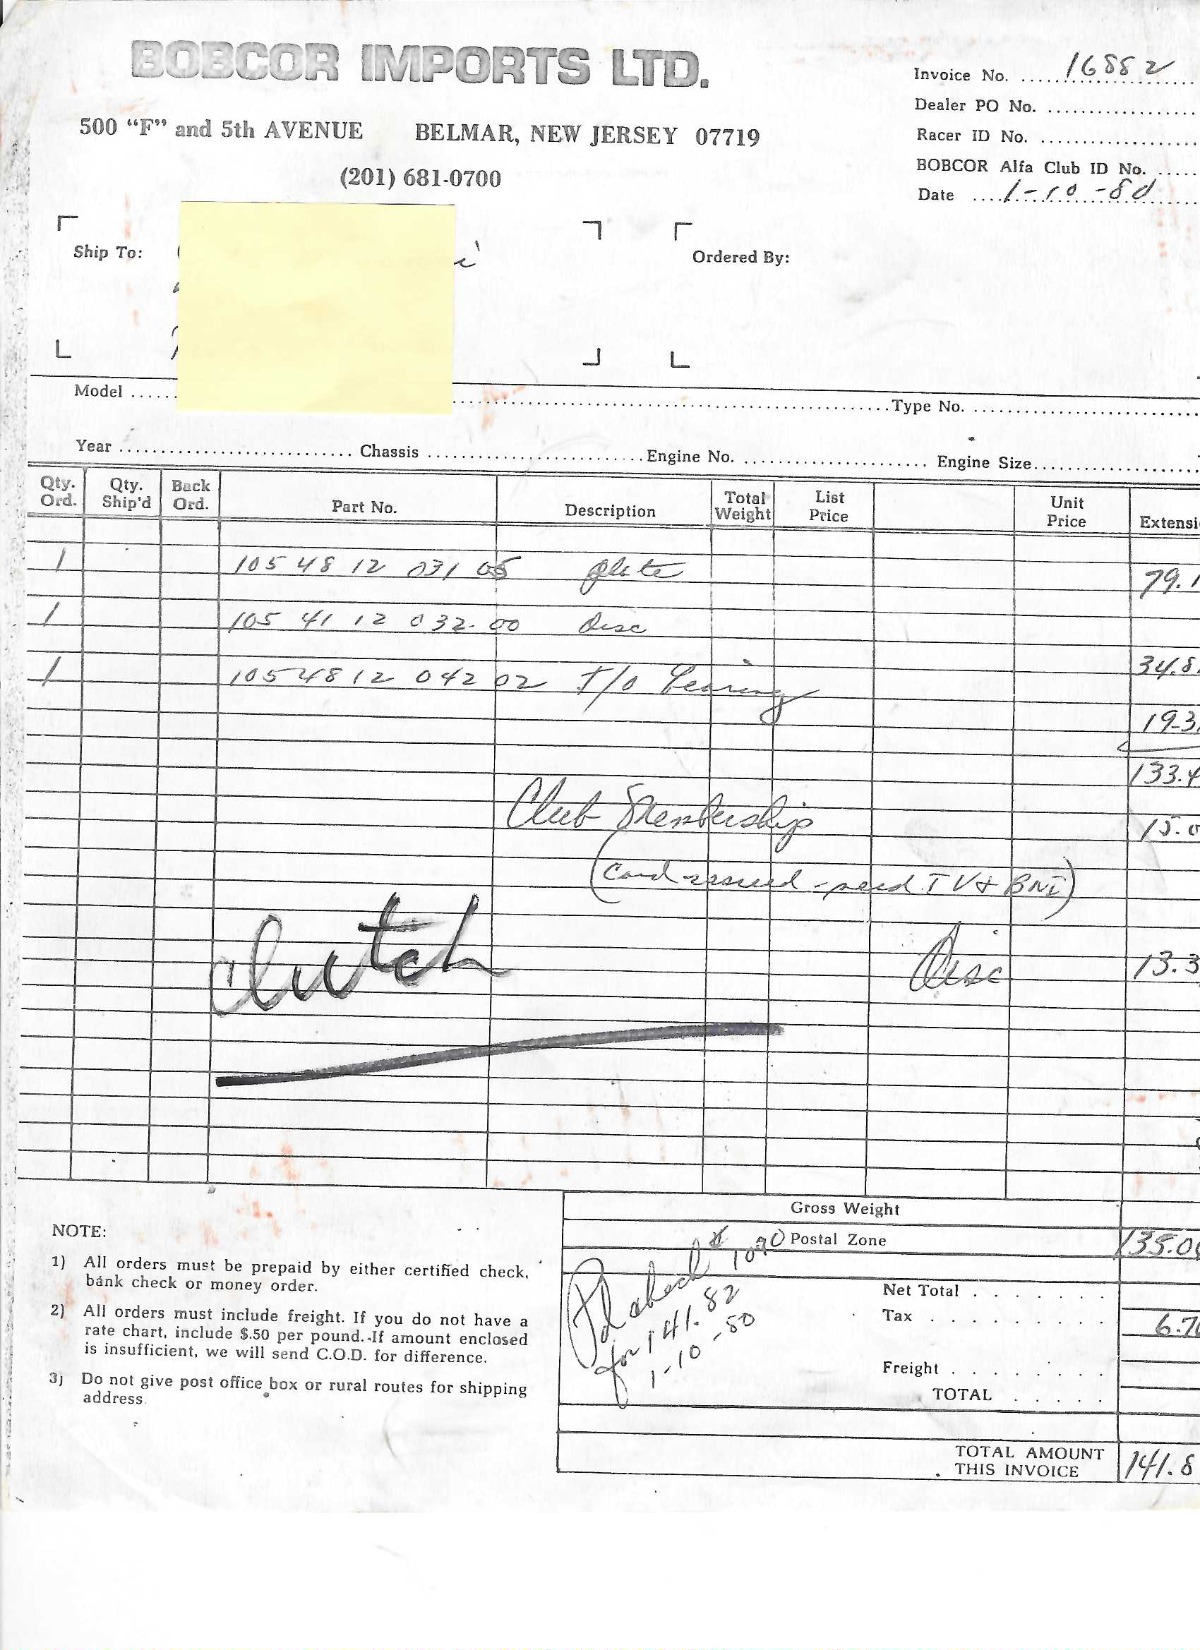 BOBCOR IMPORTS LTD.
500 “F” and 5th AVENUE BELMAR, NEW JERSEY 07719
(201) 681-0700
Invoice No. ..... 16882
Dealer PO No. ....................
Racer ID No. .......................
BOBCOR Alfa Club ID No. .....
Date .... 1-10-80
Ship To:
Ordered By:
Model ..... Type No. .......................
Year ............................ Chassis .......................... Engine No. ...................... Engine Size....................
Qty. Ord. Qty. Ship'd Back Ord. Part No. Description Total Weight List Price Unit Price Extensi
1 105 48 12 031 05 plate 79.1
1 105 41 12 032.00 Disc 34.8
1 105 48 12 042 02 T/O Bearing 19.3
133.4
Club Membership 15.0
(Card issued - TV + BNI)
Clutch
Disc 13.3
Gross Weight
Postal Zone 135.0
Net Total . . . . . . .
Tax . . . . . . . . . 6.7
Freight . . . . . . . .
TOTAL . . . . .
TOTAL AMOUNT
THIS INVOICE 141.8
Pd check # 1090
for 141.82
1-10-80
NOTE:
1) All orders must be prepaid by either certified check,
bank check or money order.
2) All orders must include freight. If you do not have a
rate chart, include $.50 per pound. If amount enclosed
is insufficient, we will send C.O.D. for difference.
3) Do not give post office box or rural routes for shipping
address